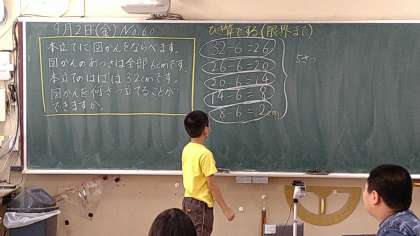 9月2日(金) No.60
本立てに図かんをならべます。
図かんのあつさは全部6cmです。
本立てのはばは32cmです。
図かんを何さつ立てることが
できますか。
ひき算でする(限界まで)
32-6=26
26-6=20
20-6=14
14-6=8
8-6=2
5さつ